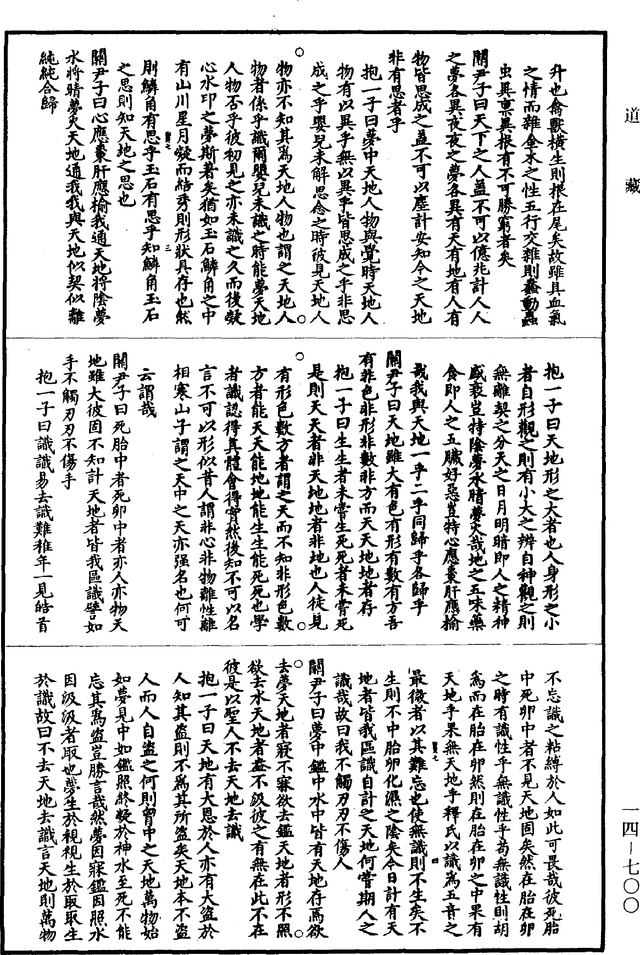 道藏
一四－七〇〇
升也禽獸橫生則根在尾矣故雖具血氣
之情而雜金木之性五行交雜則蠢動蟲
虫異稟異根有不可勝窮者矣
關尹子曰天下之人蓋不可以億兆計人人
之夢各異夜夜之夢各異有天有地有人有
物皆思成之蓋不可以塵計安知今之天地
非有思者乎
抱一子曰夢中天地人物與覺時天地人
物有以異乎無以異乎皆思成之乎非思
成之乎嬰兒未解思念之時彼見天地人
物亦不知其爲天地人物也謂之天地人
物者係乎識爾嬰兒未識之時能夢天地
人物否乎彼初見之亦未識之久而後凝
心水印之夢斯著矣猶如玉石鱗角之中
有山川星月凝而結秀則形狀具存也然
則鱗角有思乎玉石有思乎知鱗角玉石
之思則知天地之思也
關尹子曰心應棗肝應榆我通天地將陰夢
水將晴夢火天地通我我與天地似契似離
純純合歸
抱一子曰天地形之大者也人身形之小
者自形觀之則有小大之辨自神觀之則
無離契之分天之日月明暗即人之精神
盛衰豈特陰夢水晴夢火哉地之五味藥
食即人之五臟好惡豈特心應棗肝應榆
哉我與天地一乎二乎同歸乎各歸乎
關尹子曰天地雖大有色有形有數有方吾
有非色非形非數非方而天天地地者存
抱一子曰生生者未嘗生死死者未嘗死
是則天天者非天地地者非地也人徒見
有形色數方者謂之天而不知非形色數
方者能天天能地地能生生能死死也學
者識認得真體會得實然後知不可以名
言不可以形似昔人謂非心非物離性離
相寒山子謂之天中之天亦强名也何可
云謂哉
關尹子曰死胎中者死卵中者亦人亦物天
地雖大彼固不知計天地者皆我區識譬如
手不觸刃刃不傷手
抱一子曰識識易去識難稚年一見皓首
不忘識之粘縛於人如此可畏哉彼死胎
中死卵中者不見天地固矣然在胎在卵
之時有識性乎無識性乎苟無識性則胡
爲而在胎在卵然則在胎在卵之中果有
天地乎果無天地乎釋氏以識爲五音之
最微者以其難忘也使無識則不生矣不
生則不中胎卵化濕之陰矣今日計有天
地者皆我區識自計之天地何嘗期人之
識哉故曰我不觸刃刃不傷人
關尹子曰夢中鑑中水中皆有天地存焉欲
去夢天地者寢不寐欲去鑑天地者形不照
欲去水天地者盎不汲彼之有無在此不在
彼是以聖人不去天地去識
抱一子曰天地有大恩於人亦有大盜於
人知其盜則不爲其所盜矣天地本不盜
人而人自盜之何則胷中之天地萬物始
如夢見中如鑑照終凝於神水至死不能
忘其爲盜豈勝言哉然夢因寐鑑因照水
因汲汲者取也夢生於視視生於取取生
於識故曰不去天地去識言天地則萬物